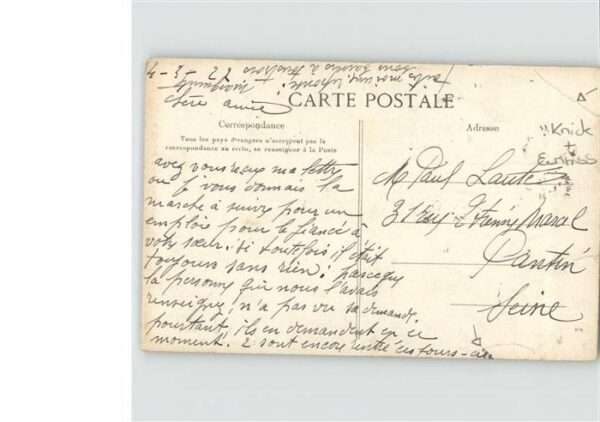 4-3-22
Chère amie
CARTE POSTALE
Correspondance
Tous les pays étrangers n'acceptent pas la
correspondance au recto, se renseigner à la Poste
Adresse
avez vous reçu ma lettre
ou je vous donnais la
marche à suivre pour un
emploi pour le fiancé à
votre sœur. si toutefois il était
toujours sans rien.
la personne que nous l'avais
renseigné, n'a pas vu sa demande
pourtant, ils en demandent en ce
moment. 2 sont encore entré ces jours-ci
M Paul
31 Rue Étienne Marcel
Pantin
Seine
"Knick
+